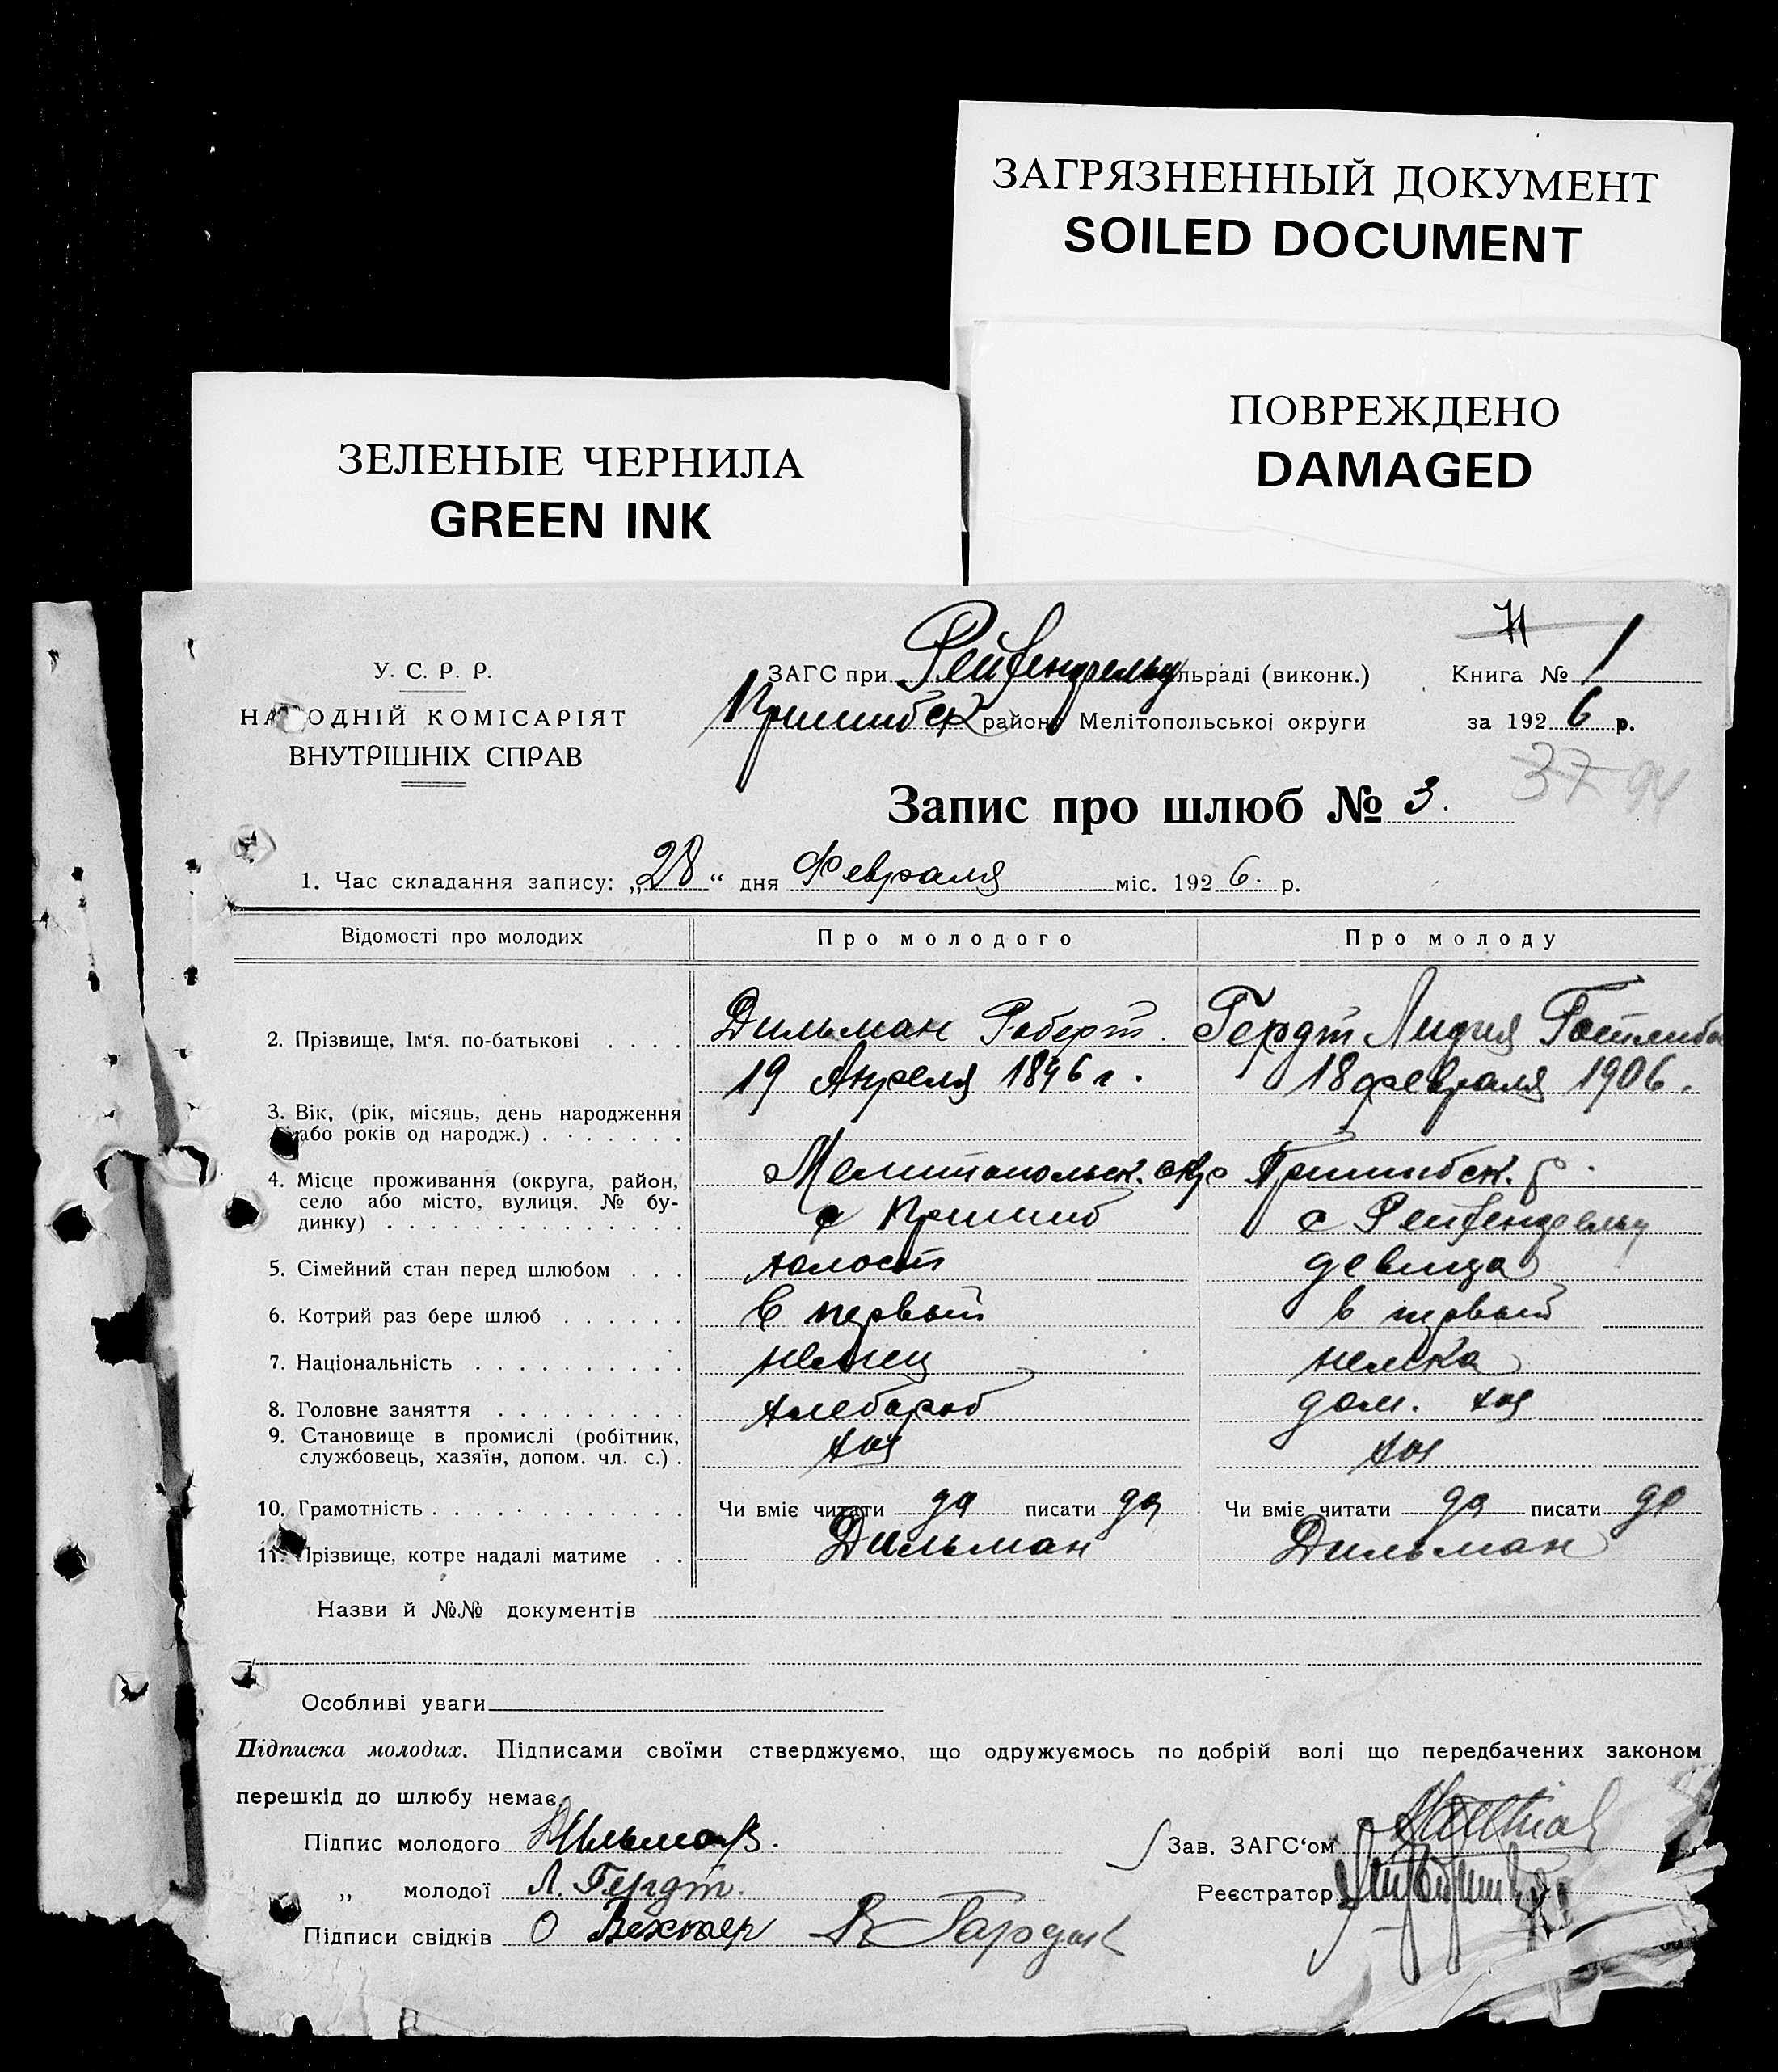 ЗАГРЯЗНЕННЫЙ ДОКУМЕНТ
SOILED DOCUMENT
ПОВРЕЖДЕНО
DAMAGED
ЗЕЛЕНЫЕ ЧЕРНИЛА
GREEN INK
У. С. Р. Р.
НАРОДНІЙ КОМІСАРІЯТ
ВНУТРІШНІХ СПРАВ
ЗАГС при Рейхенфельд льраді (виконк.)
Пришибск району Мелітопольської округи
Книга № 1
за 1926 р.
37 94
Запис про шлюб № 3.
1. Час складання запису: „28“ дня Февраля міс. 1926. р.
Відомості про молодих Про молодого Про молоду
2. Прізвище, Ім‘я. по-батькові Дильман Роберт. Гердт Лидия Готлибо
19 Апреля 1896 г. 18 февраля 1906.
3. Вік, (рік, місяць, день народження
або років од народж.)
4. Місце проживання (округа, район, Мелитопольск. окр Пришибск. р.
село або місто, вулиця. № бу-
динку) с Пришиб с Рейхенфельд
5. Сімейний стан перед шлюбом холост девица
6. Котрий раз бере шлюб в первый в первый
7. Національність немец немка
8. Головне заняття хлебороб дом. хоз
9. Становище в промислі (робітник,
службовець, хазяїн, допом. чл. с.) хоз хоз
10. Грамотність Чи вміє читати да писати да Чи вміє читати да писати да
11. Прізвище, котре надалі матиме Дильман Дильман
Назви й №№ документів
Особливі уваги
Підписка молодих. Підписами своїми стверджуємо, що одружуємось по добрій волі що передбачених законом
перешкід до шлюбу немає.
Підпис молодого Дильман.
Зав. ЗАГС‘ом
„ молодої Л. Гердт.
Реєстратор
Підписи свідків О